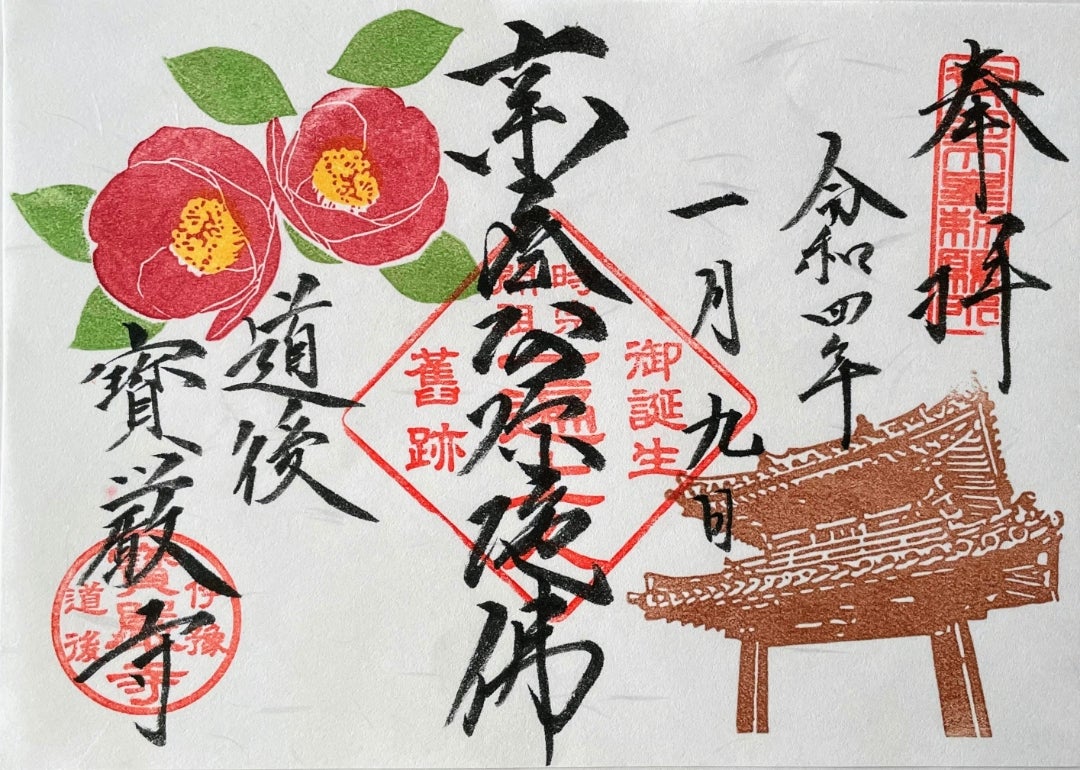 奉拝
令和四年
一月九日
南無阿弥陀佛
御誕生
時宗
開祖
一遍上人
舊跡
道後
寳厳寺
伊豫
道後
寳嚴寺